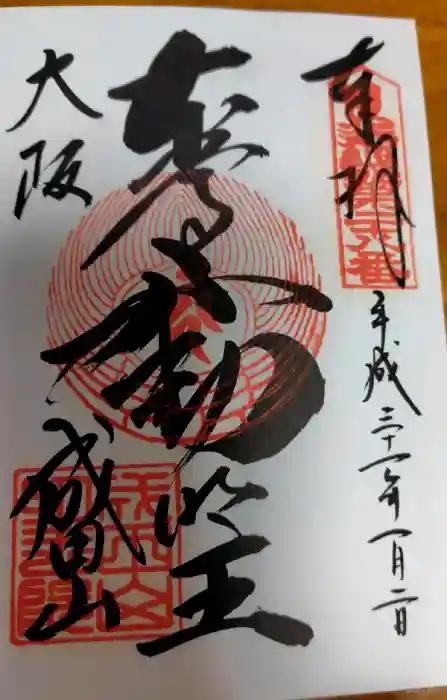 奉拝
平成三十一年一月二日
本尊不動明王
大阪
成田山
成田山